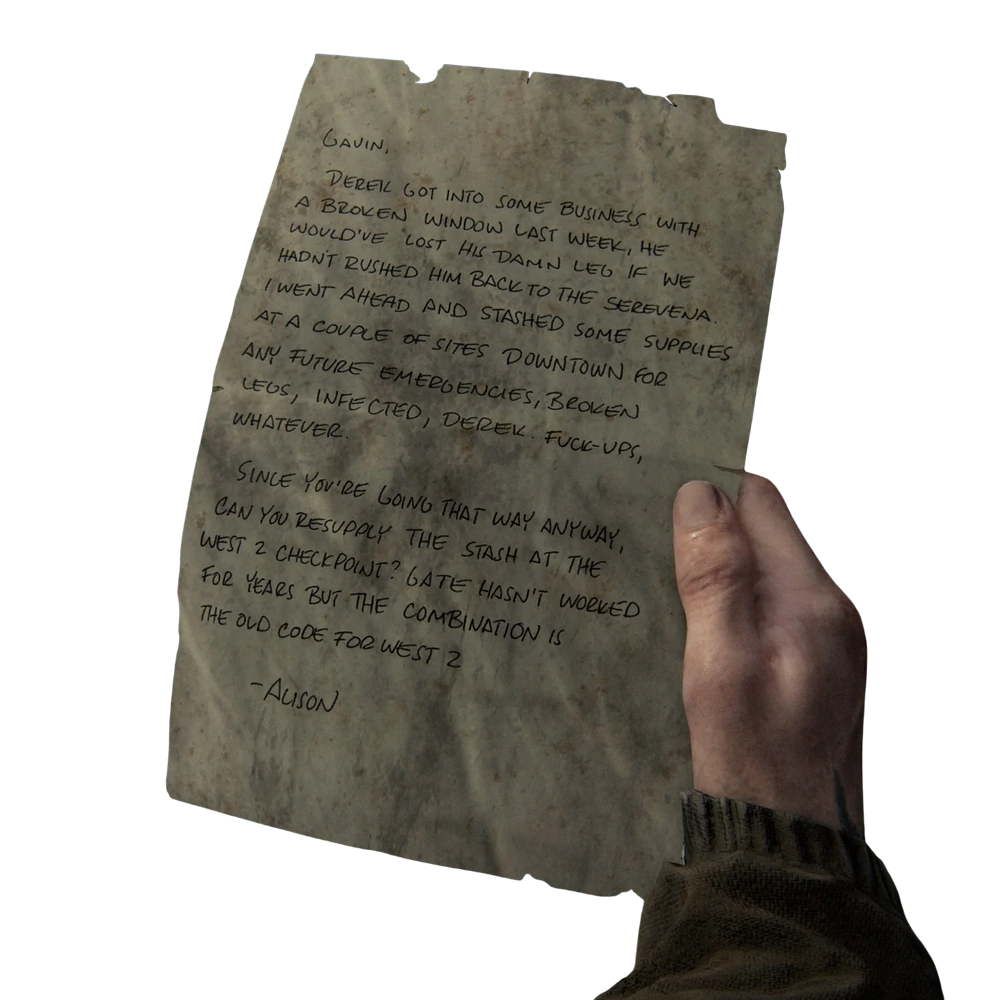 GAVIN,
DEREK GOT INTO SOME BUSINESS WITH
A BROKEN WINDOW LAST WEEK, HE
WOULD'VE LOST HIS DAMN LEG IF WE
HADN'T RUSHED HIM BACK TO THE SEREVENA.
I WENT AHEAD AND STASHED SOME SUPPLIES
AT A COUPLE OF SITES DOWNTOWN FOR
ANY FUTURE EMERGENCIES, BROKEN
LEGS, INFECTED, DEREK. FUCK-UPS,
WHATEVER.
SINCE YOU'RE GOING THAT WAY ANYWAY,
CAN YOU RESUPPLY THE STASH AT THE
WEST 2 CHECKPOINT? GATE HASN'T WORKED
FOR YEARS BUT THE COMBINATION IS
THE OLD CODE FOR WEST 2
-ALISON